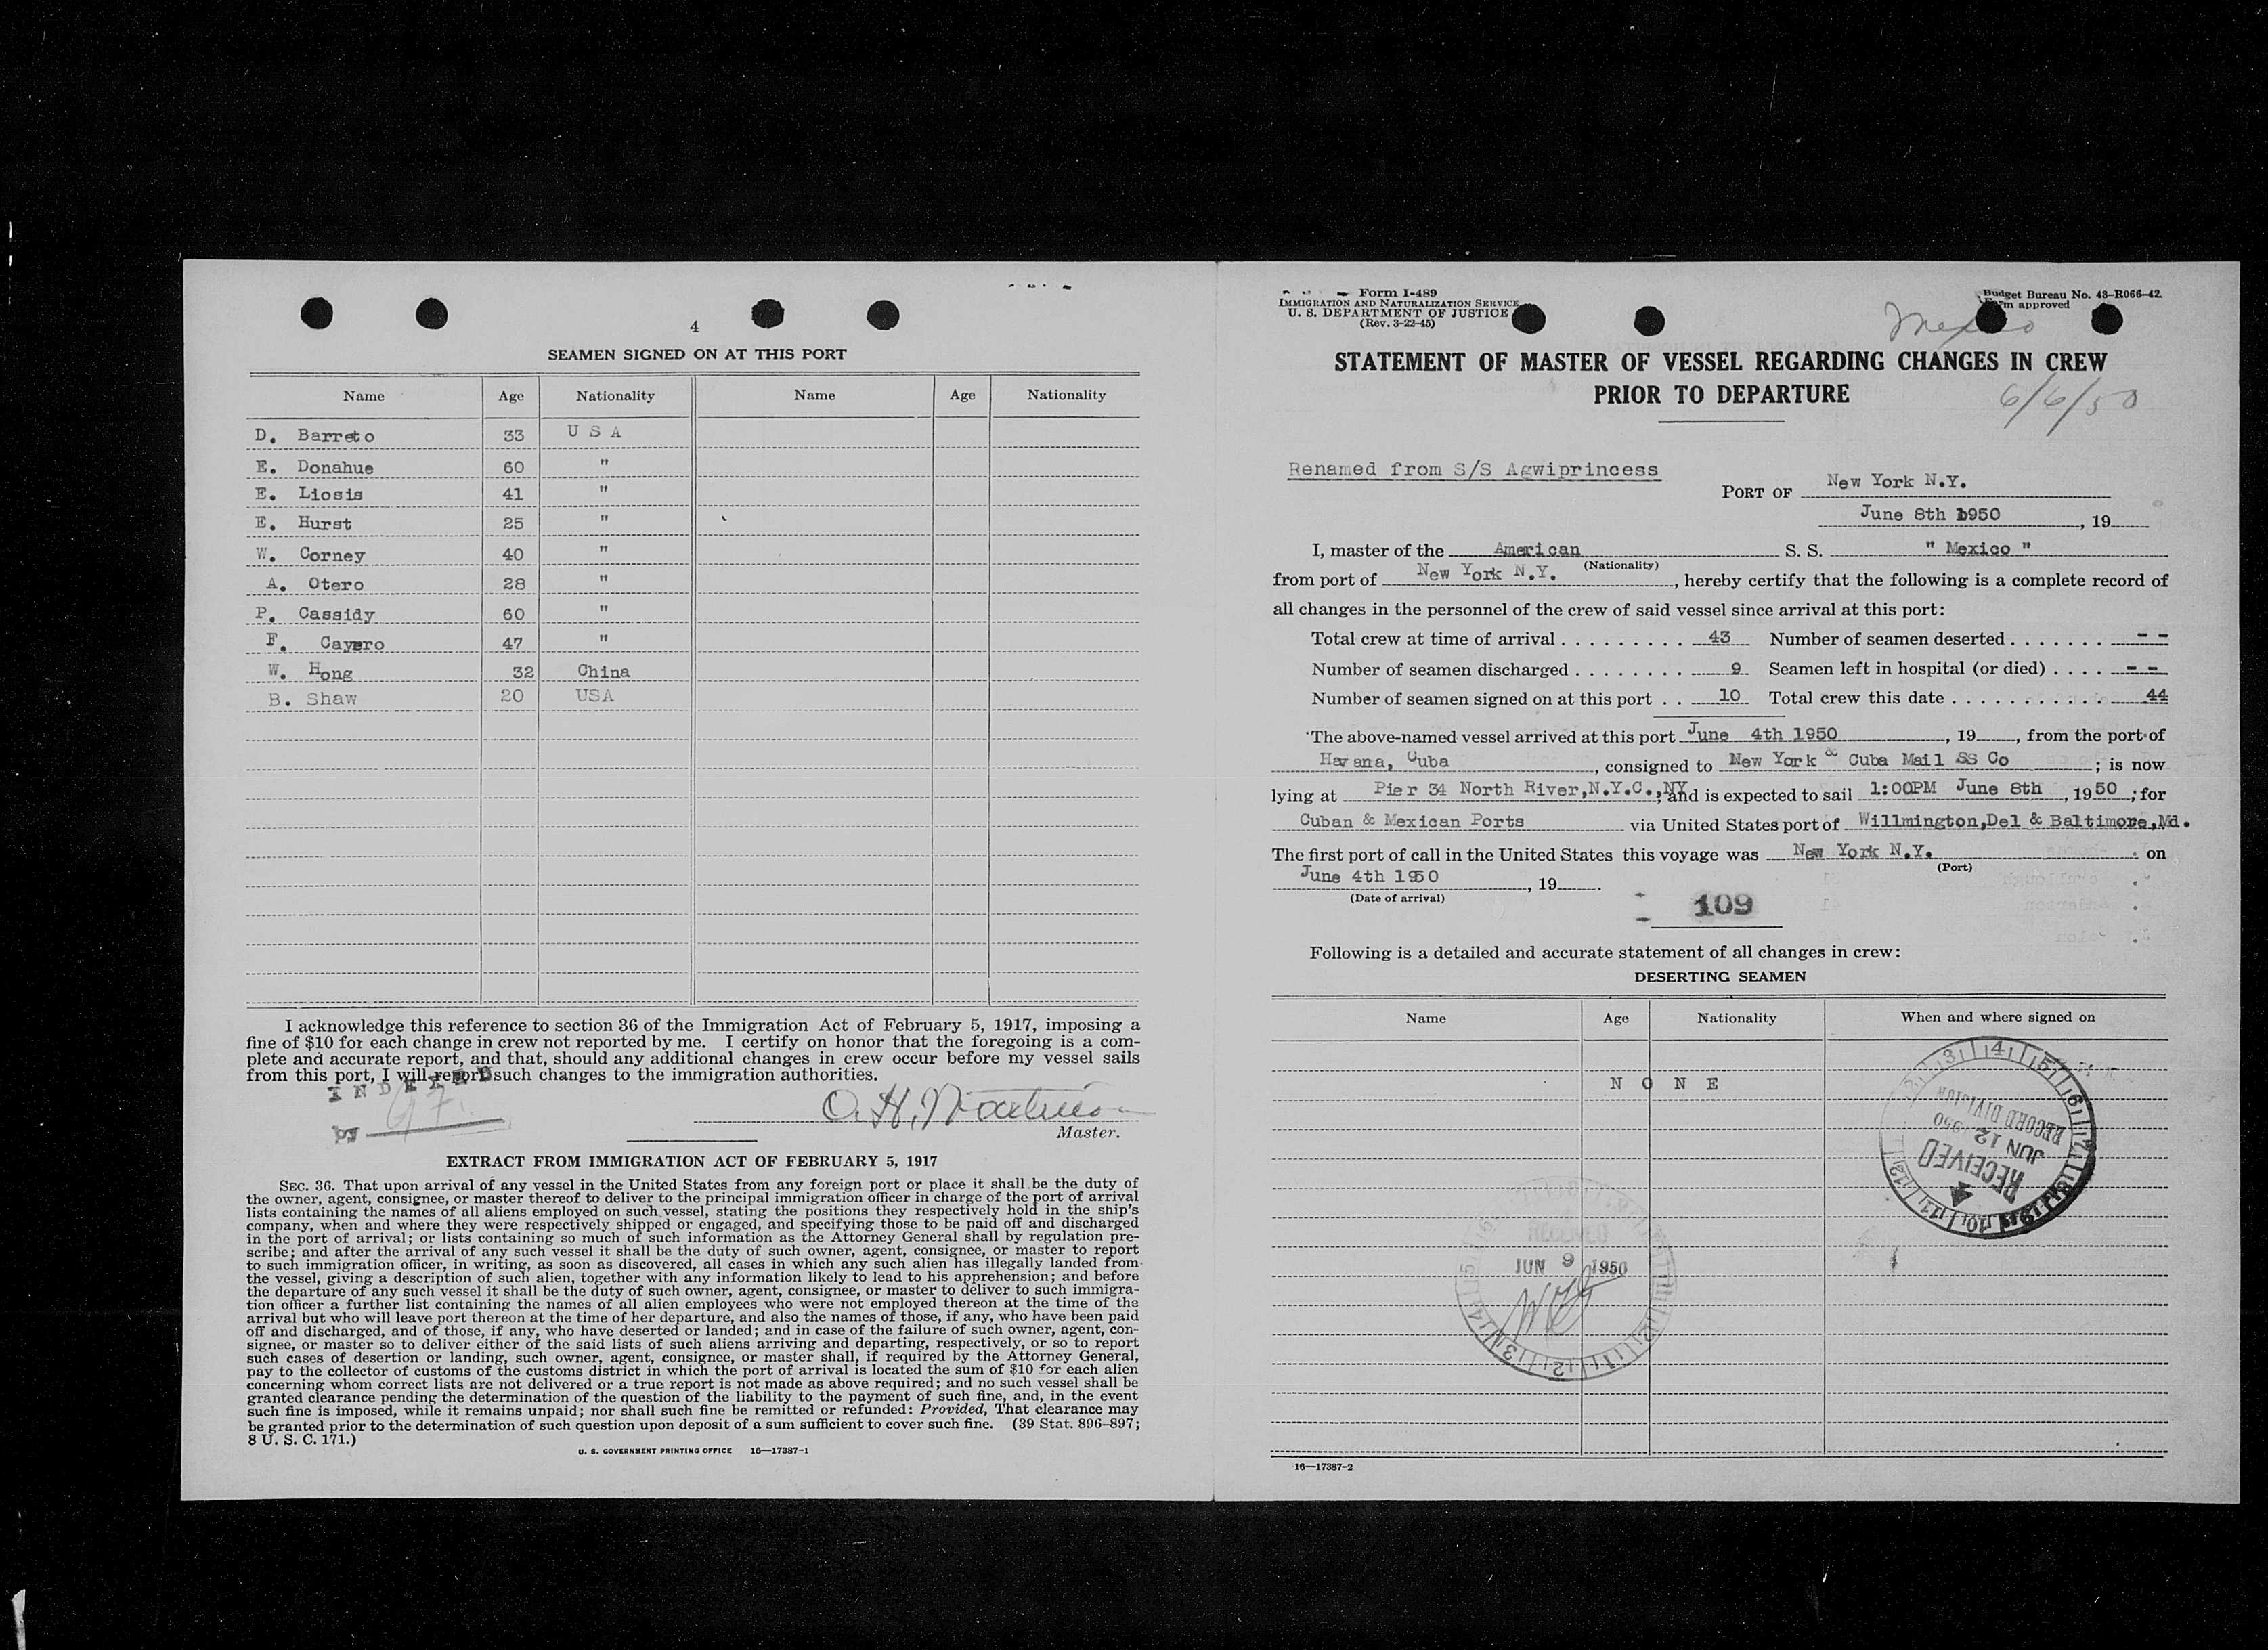 4
SEAMEN SIGNED ON AT THIS PORT
Name Age Nationality Name Age Nationality
D. Barreto 33 U S A
E. Donahue 60 "
E. Liosis 41 "
E. Hurst 25 "
W. Corney 40 "
A. Otero 28 "
P. Cassidy 60 "
F. 47 "
W. Hong 32 China
B. Shaw 20 USA
I acknowledge this reference to section 36 of the Immigration Act of February 5, 1917, imposing a
fine of $10 for each change in crew not reported by me. I certify on honor that the foregoing is a com-
plete and accurate report, and that, should any additional changes in crew occur before my vessel sails
from this port, I will report such changes to the immigration authorities.
INDEXED
by
O. H.
Master.
EXTRACT FROM IMMIGRATION ACT OF FEBRUARY 5, 1917
SEC. 36. That upon arrival of any vessel in the United States from any foreign port or place it shall be the duty of
the owner, agent, consignee, or master thereof to deliver to the principal immigration officer in charge of the port of arrival
lists containing the names of all aliens employed on such vessel, stating the positions they respectively hold in the ship's
company, when and where they were respectively shipped or engaged, and specifying those to be paid off and discharged
in the port of arrival; or lists containing so much of such information as the Attorney General shall by regulation pre-
scribe; and after the arrival of any such vessel it shall be the duty of such owner, agent, consignee, or master to report
to such immigration officer, in writing, as soon as discovered, all cases in which any such alien has illegally landed from
the vessel, giving a description of such alien, together with any information likely to lead to his apprehension; and before
the departure of any such vessel it shall be the duty of such owner, agent, consignee, or master to deliver to such immigra-
tion officer a further list containing the names of all alien employees who were not employed thereon at the time of the
arrival but who will leave port thereon at the time of her departure, and also the names of those, if any, who have been paid
off and discharged, and of those, if any, who have deserted or landed; and in case of the failure of such owner, agent, con-
signee, or master so to deliver either of the said lists of such aliens arriving and departing, respectively, or so to report
such cases of desertion or landing, such owner, agent, consignee, or master shall, if required by the Attorney General,
pay to the collector of customs of the customs district in which the port of arrival is located the sum of $10 for each alien
concerning whom correct lists are not delivered or a true report is not made as above required; and no such vessel shall be
granted clearance pending the determination of the question of the liability to the payment of such fine, and, in the event
such fine is imposed, while it remains unpaid; nor shall such fine be remitted or refunded: Provided, That clearance may
be granted prior to the determination of such question upon deposit of a sum sufficient to cover such fine. (39 Stat. 896-897;
8 U. S. C. 171.)
U. S. GOVERNMENT PRINTING OFFICE 16—17387-1
Form I-489
IMMIGRATION AND NATURALIZATION SERVICE
U. S. DEPARTMENT OF JUSTICE
(Rev. 3-22-45)
Budget Bureau No. 43-R066-42
Form approved
Mexico
STATEMENT OF MASTER OF VESSEL REGARDING CHANGES IN CREW
PRIOR TO DEPARTURE
6/6/50
Renamed from S/S Agwiprincess
PORT OF New York N.Y.
June 8th 1950, 19
I, master of the American S. S. " Mexico "
(Nationality)
from port of New York N.Y., hereby certify that the following is a complete record of
all changes in the personnel of the crew of said vessel since arrival at this port:
Total crew at time of arrival . . . . . . . . . 43 Number of seamen deserted . . . . . . . - -
Number of seamen discharged . . . . . . . . 9 Seamen left in hospital (or died) . . . . - -
Number of seamen signed on at this port . . 10 Total crew this date . . . . . . . . . . . 44
The above-named vessel arrived at this port June 4th 1950, 19, from the port of
Havana, Cuba, consigned to New York & Cuba Mail SS Co; is now
lying at Pier 34 North River,N.Y.C.,NY; and is expected to sail 1:00PM June 8th, 1950; for
Cuban & Mexican Ports via United States port of Willmington,Del & Baltimore,Md.
The first port of call in the United States this voyage was New York N.Y. on
(Port)
June 4th 1950, 19.
(Date of arrival)
109
Following is a detailed and accurate statement of all changes in crew:
DESERTING SEAMEN
Name Age Nationality When and where signed on
N O N E
RECORD DIVISION
JUN 12 1950
RECEIVED
RECEIVED
JUN 9 1950
16—17387-2